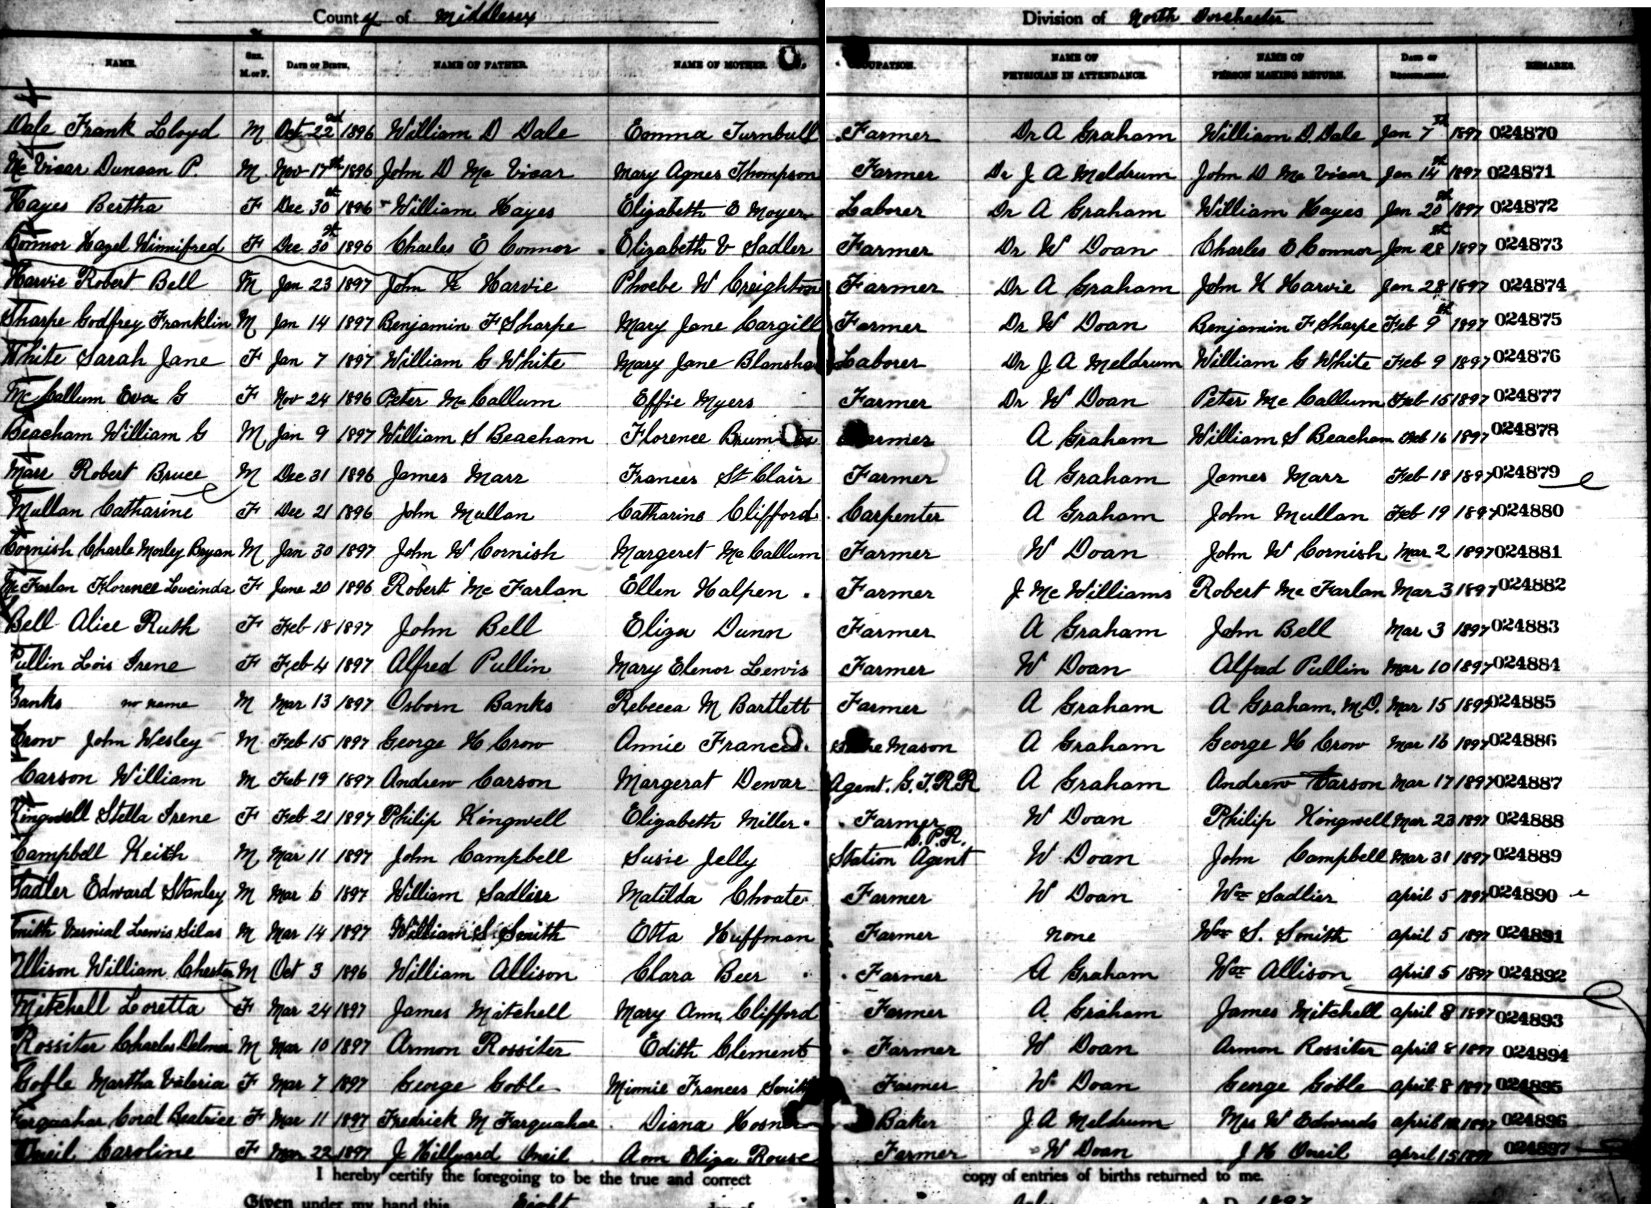 County of Middlesex Division of North Dorchester
NAME. SEX. M. or F. DATE OF BIRTH. NAME OF FATHER. NAME OF MOTHER. OCCUPATION. NAME OF PHYSICIAN IN ATTENDANCE. NAME OF PERSON MAKING RETURN. DATE OF REGISTRATION. REMARKS.
Dale Frank Lloyd M Oct 22 1896 William D Dale Emma Turnbull Farmer Dr A Graham William D. Dale Jan 7th 1897 024870
Mc Vicar Duncan P. M Nov 17th 1896 John D Mc Vicar Mary Agnes Thompson Farmer Dr J A Meldrum John D Mc Vicar Jan 14th 1897 024871
Hayes Bertha F Dec 30 1896 William Hayes Elizabeth E Moyer Laborer Dr A Graham William Hayes Jan 20th 1897 024872
Connor Hazel Winnifred F Dec 30th 1896 Charles E Connor Elizabeth V Sadler Farmer Dr W Doan Charles E Connor Jan 28th 1897 024873
Harvie Robert Bell M Jan 23 1897 John H Harvie Phoebe W Creighton Farmer Dr A Graham John H Harvie Jan 28 1897 024874
Sharpe Godfrey Franklin M Jan 14 1897 Benjamin F Sharpe Mary Jane Cargill Farmer Dr W Doan Benjamin F Sharpe Feb 9th 1897 024875
White Sarah Jane F Jan 7 1897 William G White Mary Jane Laborer Dr J A Meldrum William G White Feb 9 1897 024876
Mc Callum Eva G F Nov 24 1896 Peter Mc Callum Effie Myers Farmer Dr W Doan Peter Mc Callum Feb 15 1897 024877
Beacham William G M Jan 9 1897 William S Beacham Florence Farmer A Graham William S Beacham Feb 16 1897 024878
Marr Robert Bruce M Dec 31 1896 James Marr Frances St Clair Farmer A Graham James Marr Feb 18 1897 024879
Mullan Catharine F Dec 21 1896 John Mullan Catharine Clifford Carpenter A Graham John Mullan Feb 19 1897 024880
Cornish Charle Morley Bryan M Jan 30 1897 John W Cornish Margeret Mc Callum Farmer W Doan John W Cornish Mar 2 1897 024881
Mc Farlan Florence Lucinda F June 20 1896 Robert Mc Farlan Ellen Halpen Farmer J Mc Williams Robert Mc Farlan Mar 3 1897 024882
Bell Alice Ruth F Feb 18 1897 John Bell Eliza Dunn Farmer A Graham John Bell Mar 3 1897 024883
Pullin Lois Irene F Feb 4 1897 Alfred Pullin Mary Elenor Lewis Farmer W Doan Alfred Pullin Mar 10 1897 024884
Banks no name M Mar 13 1897 Osborn Banks Rebecca M Bartlett Farmer A Graham A Graham, M.D. Mar 15 1897 024885
Crow John Wesley M Feb 15 1897 George H Crow Annie Frances Stone Mason A Graham George H Crow Mar 16 1897 024886
Carson William M Feb 19 1897 Andrew Carson Margerat Dewar Agent. G.T.R.R A Graham Andrew Carson Mar 17 1897 024887
Kingwell Stella Irene F Feb 21 1897 Philip Kingwell Elizabeth Miller Farmer W Doan Philip Kingwell Mar 23 1897 024888
Campbell Keith M Mar 11 1897 John Campbell Susie Jelly Station Agent C.P.R. W Doan John Campbell Mar 31 1897 024889
Sadler Edward Stanley M Mar 6 1897 William Sadlier Matilda Choate Farmer W Doan Wm Sadlier April 5 1897 024890
Smith Vernial Lewis Silas M Mar 14 1897 William S. Smith Etta Huffman Farmer none Wm S. Smith April 5 1897 024891
Allison William Chester M Oct 3 1896 William Allison Clara Beer Farmer A Graham Wm Allison April 5 1897 024892
Mitchell Loretta F Mar 24 1897 James Mitchell Mary Ann Clifford Farmer A Graham James Mitchell April 8 1897 024893
Rossiter Charles Delmer M Mar 10 1897 Armon Rossiter Edith Clement Farmer W Doan Armon Rossiter April 8 1897 024894
Goble Martha Valeria F Mar 7 1897 George Goble Minnie Frances Smith Farmer W Doan George Goble April 8 1897 024895
Farquahar Coral Beatrice F Mar 11 1897 Fredrick M Farquahar Diana Baker J A Meldrum Mrs W Edwards April 1897 024896
Oneil Caroline F Mar 22 1897 J Hillyard Oneil Ann Eliza Rouse Farmer W Doan J H Oneil April 15 1897 024897
I hereby certify the foregoing to be the true and correct copy of entries of births returned to me.
Given under my hand this Eight day of July A.D. 1897